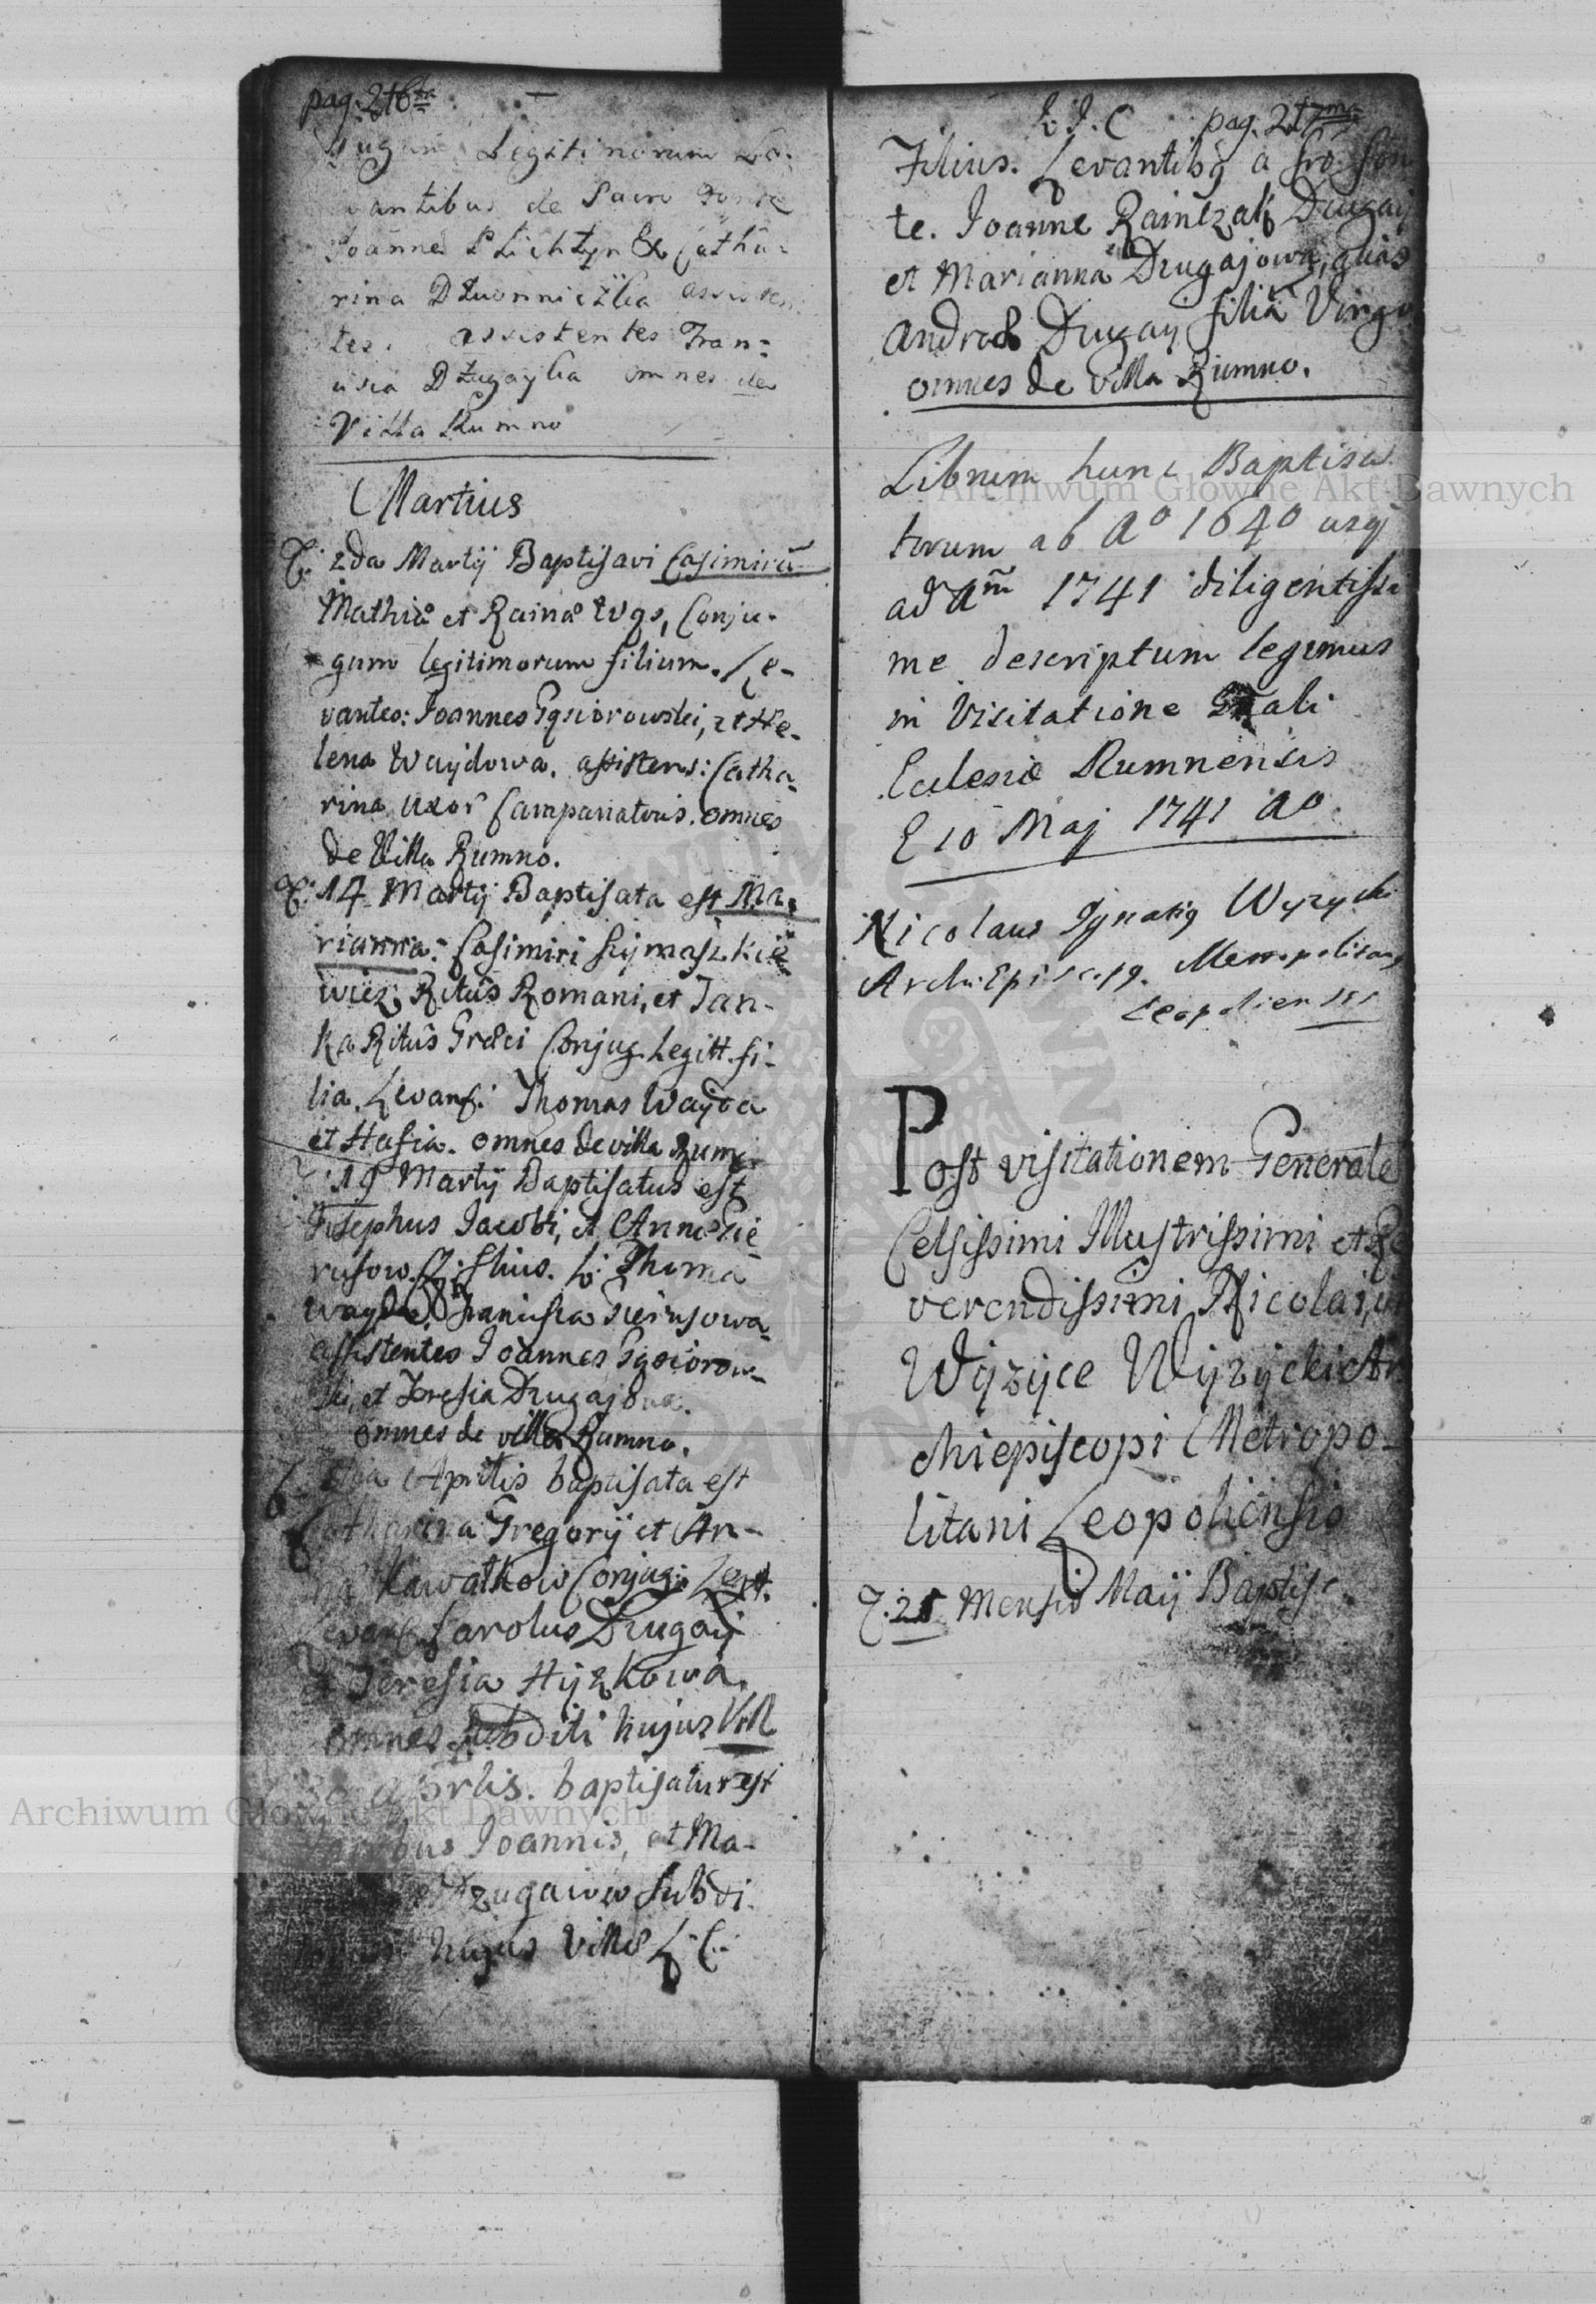 pag. 216ta
jugum Legitimorum Le-
vantibus de Sacro Fonte
Joanne Plichtyn & Catha-
rina Dzwonniczka assisten
tes. assistentes Fran-
Dzugayka omnes de
Villa Rumno
Martius
2da Martij Baptisavi Casimirũ
Mathiæ et Rainæ Wąs, Conju-
gum legitimorum filium. Le-
vantes: Joannes Gąsiorowski, et He-
lena Waydowa. assistens: Catha-
rina uxor Campanatoris. omnes
de Villa Rumno.
14 Martij Baptisata est Ma-
rianna: Casimiri Szymaszkie
wicz Ritûs Romani, et Jan-
ka Ritûs Græci Conjug. Legitt. fi-
lia. Levant: Thomas Wayda
et Hasia. omnes de villa Rum:
19 Martij Baptisatus est
Josephus Jacobi, et Annæ Gie
rusow. filius. L: Thoma
Wayda. Gierusowa
assistentes Joannes Gąsiorow-
ski, et Teresia Dzugajowa.
omnes de villa Rumno.
Aprilis baptisata est
Catharina Gregorij et An-
na Kawałkow Conjug: Legt.
Levant. Carolus Dzugaij
et Teresia Hyzkowa.
omnes subditi hujus V:R
Aprlis. baptisatus est
Joannis, et Ma-
Dzugaiow subdi
hujus Villæ L: C:
L. J. C pag. 217ma
Filius. Levantibq a sro fon
te. Joanne Dzugaij
et Marianna Dzugajowa, alias
Andreæ Dzugaij filia Virgo
omnes de Villa Rumno.
Librum hunc Baptisa
torum ab Ao 1640 usq
ad Am 1741 diligentissi
me descriptum legimus
in Visitatione Gnali
Eclesiæ Rumnensis
10 Maj 1741 Ao
Nicolaus Ignatiq Wyzycki
ArchiEpiscopq. Metropolitanq
Leopoliensis
Post visitationem Generale
Celsissimi Illustrissimi et Re
verendissimi Nicolai, in
Wyzyce Wyzycki Ar
chiepiscopi Metropo-
litani Leopoliensis
25 Mensis Maij Baptis
Archiwum Główne Akt Dawnych
Archiwum Główne Akt Dawnych